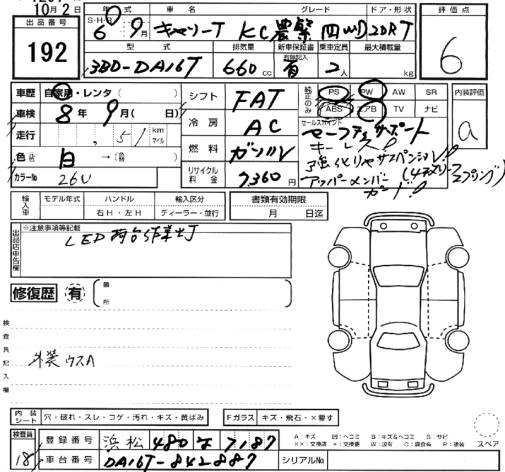 10月2日
出品番号
192
年式 車名 グレード ドア・形状
S・H・R
6年9月 キャリーT KC農繁 四WD 2DRT
型式 排気量 新車保証書 有限記入 乗車定員 最大積載量
3BD-DA16T 660cc 有 2人 kg
評価点
6
車歴 自家用・レンタ( )
車検 8年9月( 日)
走行 51 km マイル
色 白
カラーNo 26U
シフト FAT
冷房 AC
燃料 ガソリン
リサイクル料金 7,360円
純正のみ PS PW AW SR
ABS エアB TV ナビ
セールスポイント
セーフティサポート
キーレス
強化リヤサスペンション!(4本スプリング)
アッパーメンバーガード!!
内装評価
a
輸入車 モデル年式 ハンドル 輸入区分
年 右H・左H ディーラー・並行
書類有効期限
月 日迄
出品店申告欄
※注意事項等記載
LED荷台作業灯
修復歴 有
箇所
検査員記入欄
外装ウスA
内装シート 穴・破れ・スレ・コゲ・汚れ・キズ・黄ばみ
Fガラス キズ・飛石・×要す
A:キズ U:ヘコミ B:キズ&ヘコミ S:サビ
××:交換済 ×:要交換 W:波有 C:腐食有 P:要塗装
スペア
検査員
18
登録番号 浜松 480 な 7187
車台番号 DA16T-842887
シリアルNo